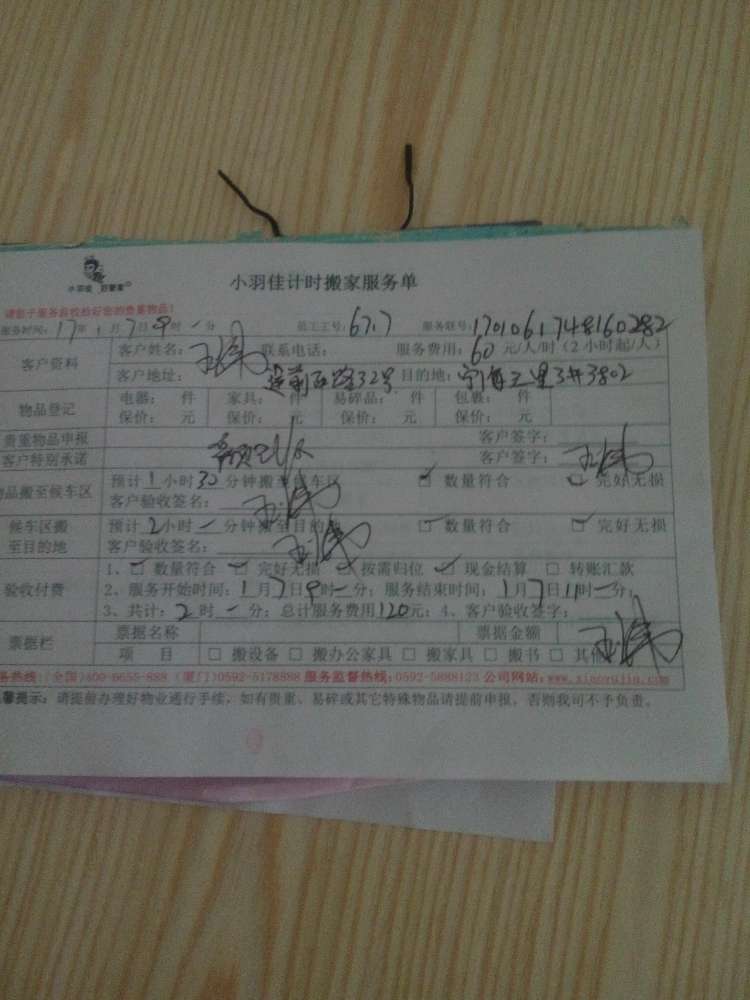 小羽佳 好管家
小羽佳计时搬家服务单
请您于服务前收拾好您的贵重物品!
服务时间:17年1月7日9时一分 员工工号:67.7 服务联号:1701061748160282
客户资料
客户姓名:王 联系电话: 服务费用:60元/人/时(2小时起/人)
客户地址:堤前西路32号 目的地:宁海三里3#3802
物品登记
电器: 件 家具: 件 易碎品: 件 包裹: 件
保价: 元 保价: 元 保价: 元 保价: 元
贵重物品申报 客户签字:
客户特别承诺 客户签字:王
物品搬至候车区
预计1小时30分钟搬至候车区 数量符合 完好无损
客户验收签名:王
候车区搬至目的地
预计2小时一分钟搬至目的地 数量符合 完好无损
客户验收签名:王
验收付费
1、数量符合 完好无损 按需归位 现金结算 转账汇款
2、服务开始时间:1月7日9时一分;服务结束时间:1月7日11时一分;
3、共计:2时一分;总计服务费用120元;4、客户验收签字:王
票据栏
票据名称 票据金额
项 目 搬设备 搬办公家具 搬家具 搬书 其他
务热线:(全国)400-6655-888 (厦门)0592-5178888 服务监督热线:0592-5888123 公司网站:www.xiaoyujia.com
馨提示:请提前办理好物业通行手续,如有贵重、易碎或其它特殊物品请提前申报,否则我司不予负责。